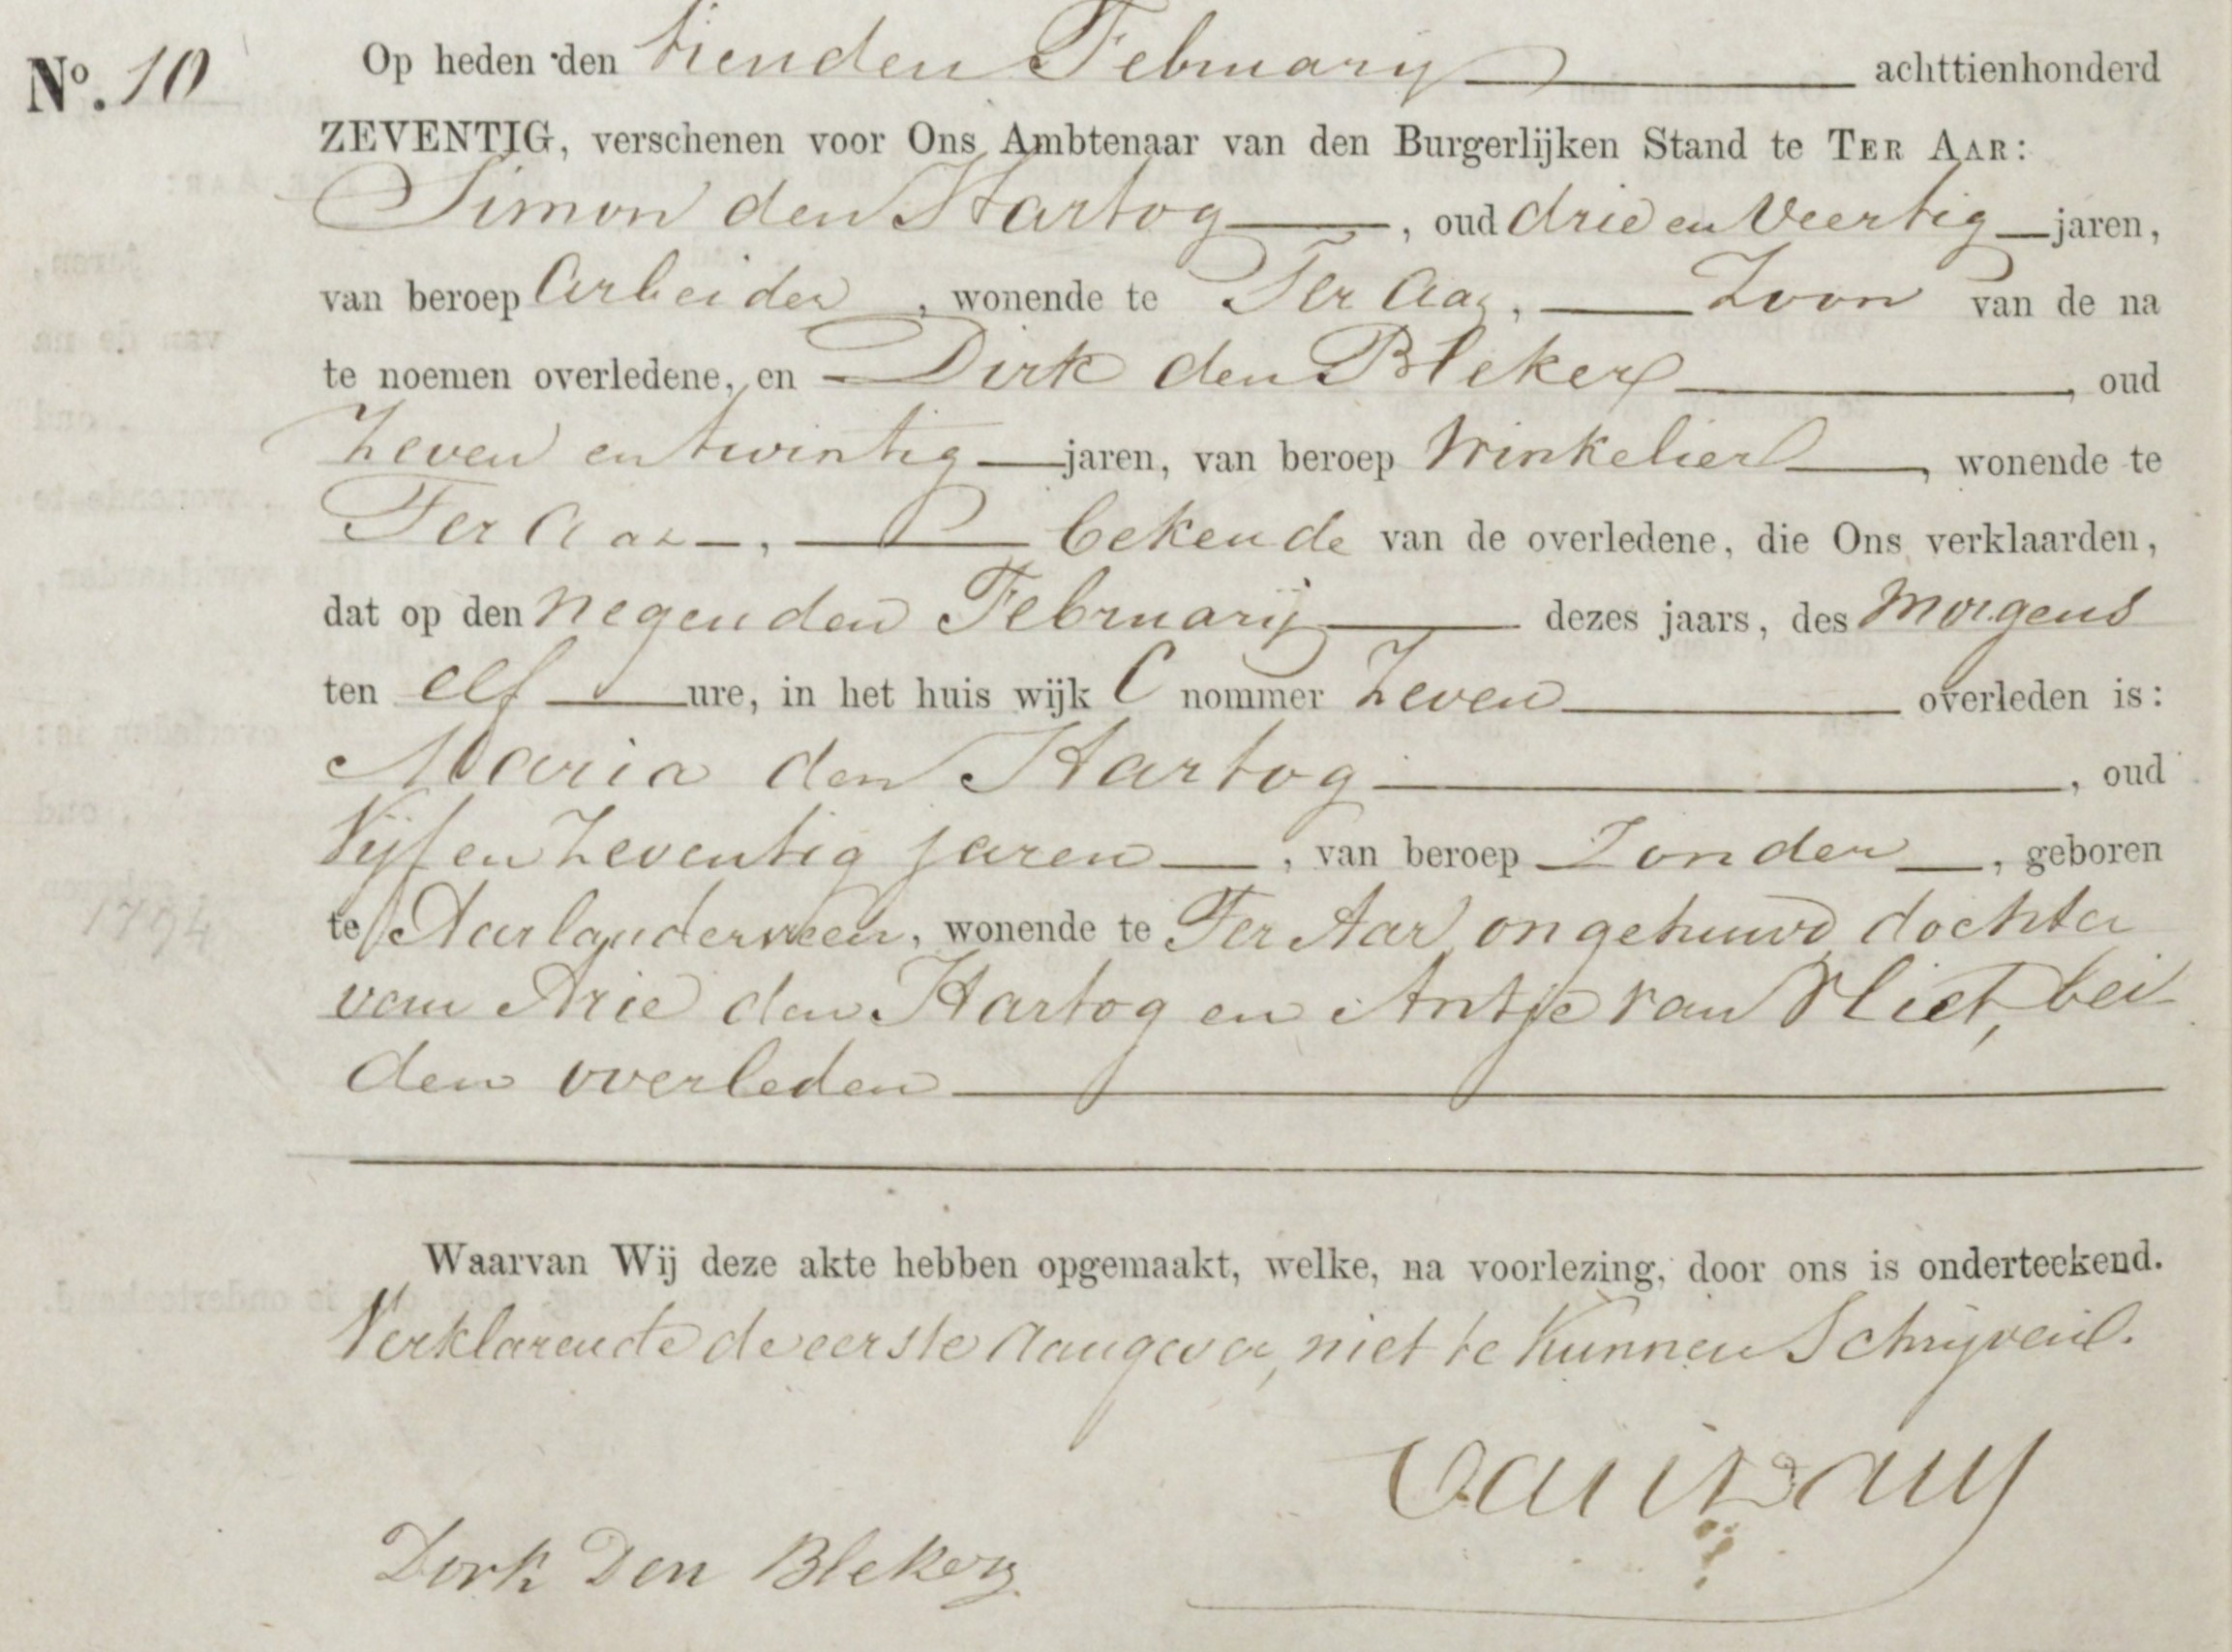 Nº. 10
Op heden den tienden February achttienhonderd
ZEVENTIG, verschenen voor Ons Ambtenaar van den Burgerlijken Stand te TER AAR:
Simon den Hartog, oud drie en Veertig jaren,
van beroep Arbeider, wonende te Ter Aar, Zoon van de na
te noemen overledene, en Dirk den Bleker, oud
Zeven en twintig jaren, van beroep Winkelier, wonende te
Ter Aar, bekende van de overledene, die Ons verklaarden,
dat op den negenden Februarij dezes jaars, des Morgens
ten elf ure, in het huis wijk C nommer Zeven overleden is:
Maria den Hartog, oud
Vijf en Zeventig jaren, van beroep Zonder, geboren
te Aarlanderveen, wonende te Ter Aar, ongehuwd, dochter
van Arie den Hartog en Antje van Vliet, bei
den overleden
1794
Waarvan Wij deze akte hebben opgemaakt, welke, na voorlezing, door ons is onderteekend.
Verklarende de eerste Aangever, niet te Kunnen Schrijven.
Dirk Den Bleker